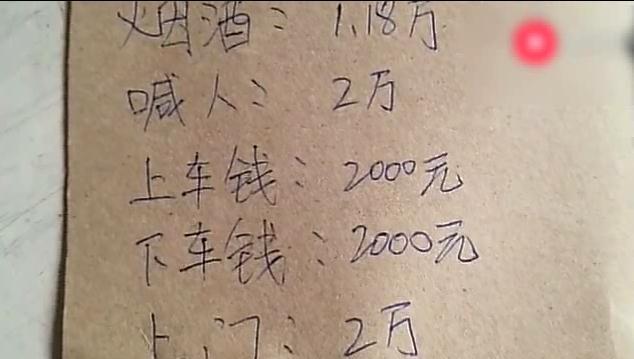 烟酒：1.18万
喊人：2万
上车钱：2000元
下车钱：2000元
上门：2万